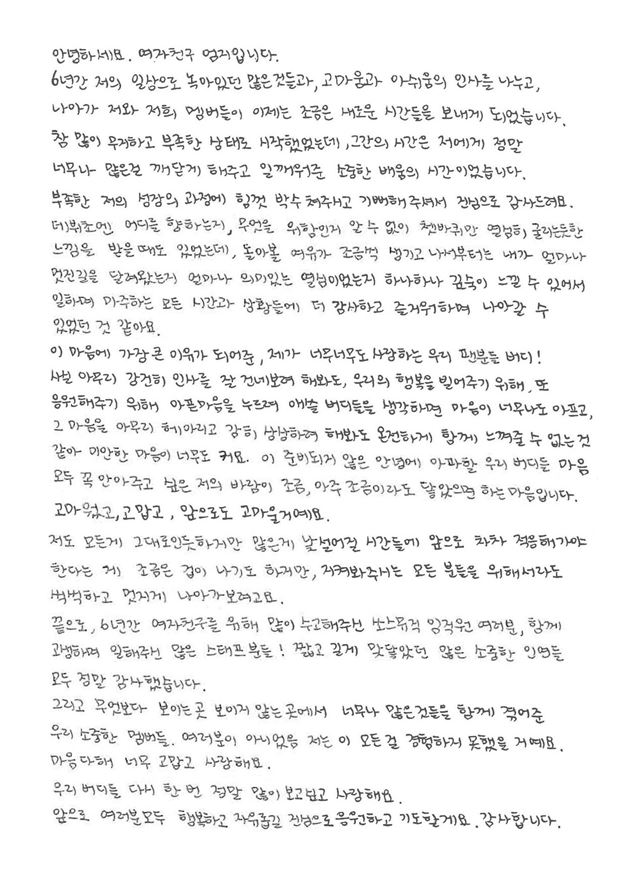 안녕하세요. 여자친구 엄지입니다.
6년간 저의 일상으로 녹아있던 많은것들과, 고마움과 아쉬움의 인사를 나누고,
나아가 저와 저희 멤버들이 이제는 조금은 새로운 시간들을 보내게 되었습니다.
참 많이 무지하고 부족한 상태로 시작했었는데, 그간의 시간은 저에게 정말
너무나 많은걸 깨닫게 해주고 일깨워준 소중한 배움의 시간이었습니다.
부족한 저의 성장의 과정에 힘껏 박수 쳐주시고 기뻐해 주셔서 진심으로 감사드려요.
데뷔초에는 어디를 향하는지, 무엇을 위함인지 알 수 없이 쳇바퀴만 열심히 굴리는듯한
느낌을 받을때도 있었는데, 돌아볼 여유가 조금씩 생기고 나서부터는 내가 얼마나
멋진길을 달려왔는지 얼마나 의미있는 열심이었는지 하나하나 깊숙이 느낄 수 있어서
일하며 마주하는 모든 시간과 상황들에 더 감사하고 즐거워하며 나아갈 수
있었던 것 같아요.
이 마음에 가장 큰 이유가 되어준, 제가 너무너무도 사랑하는 우리 팬분들 버디!
사실 아무리 강건히 인사를 잘 건네보려 해봐도, 우리의 행복을 빌어주기 위해, 또
응원해주기 위해 아픈마음을 누르며 애쓸 버디들을 생각하면 마음이 너무나도 아프고,
그 마음을 아무리 헤아리고 감히 상상하려 해봐도 온전하게 함께 느껴줄 수 없는것
같아 미안한 마음이 너무도 커요. 이 준비되지 않은 안녕에 아파할 우리 버디들 마음
모두 꼭 안아주고 싶은 저의 바람이 조금, 아주 조금이라도 닿았으면 하는 마음입니다.
고마웠고, 고맙고, 앞으로도 고마울거예요.
저도 모든게 그대로인듯하지만 많은게 낯설어질 시간들에 앞으로 차차 적응해가야
한다는 게 조금은 겁이 나기도 하지만, 지켜봐주시는 모든 분들을 위해서라도
씩씩하고 멋지게 나아가보려고요.
끝으로, 6년간 여자친구를 위해 많이 수고해주신 쏘스뮤직 임직원 여러분, 함께
고생하며 일해주신 많은 스태프분들! 짧고 길게 맞닿았던 많은 소중한 인연들
모두 정말 감사했습니다.
그리고 무엇보다 보이는곳 보이지 않는 곳에서 너무나 많은것들을 함께 겪어준
우리 소중한 멤버들. 여러분이 아니었음 저는 이 모든걸 경험하지 못했을 거예요.
마음 다해 너무 고맙고 사랑해요.
우리 버디들 다시 한 번 정말 많이 보고싶고 사랑해요.
앞으로 여러분모두 행복하고 자유롭길 진심으로 응원하고 기도할게요. 감사합니다.